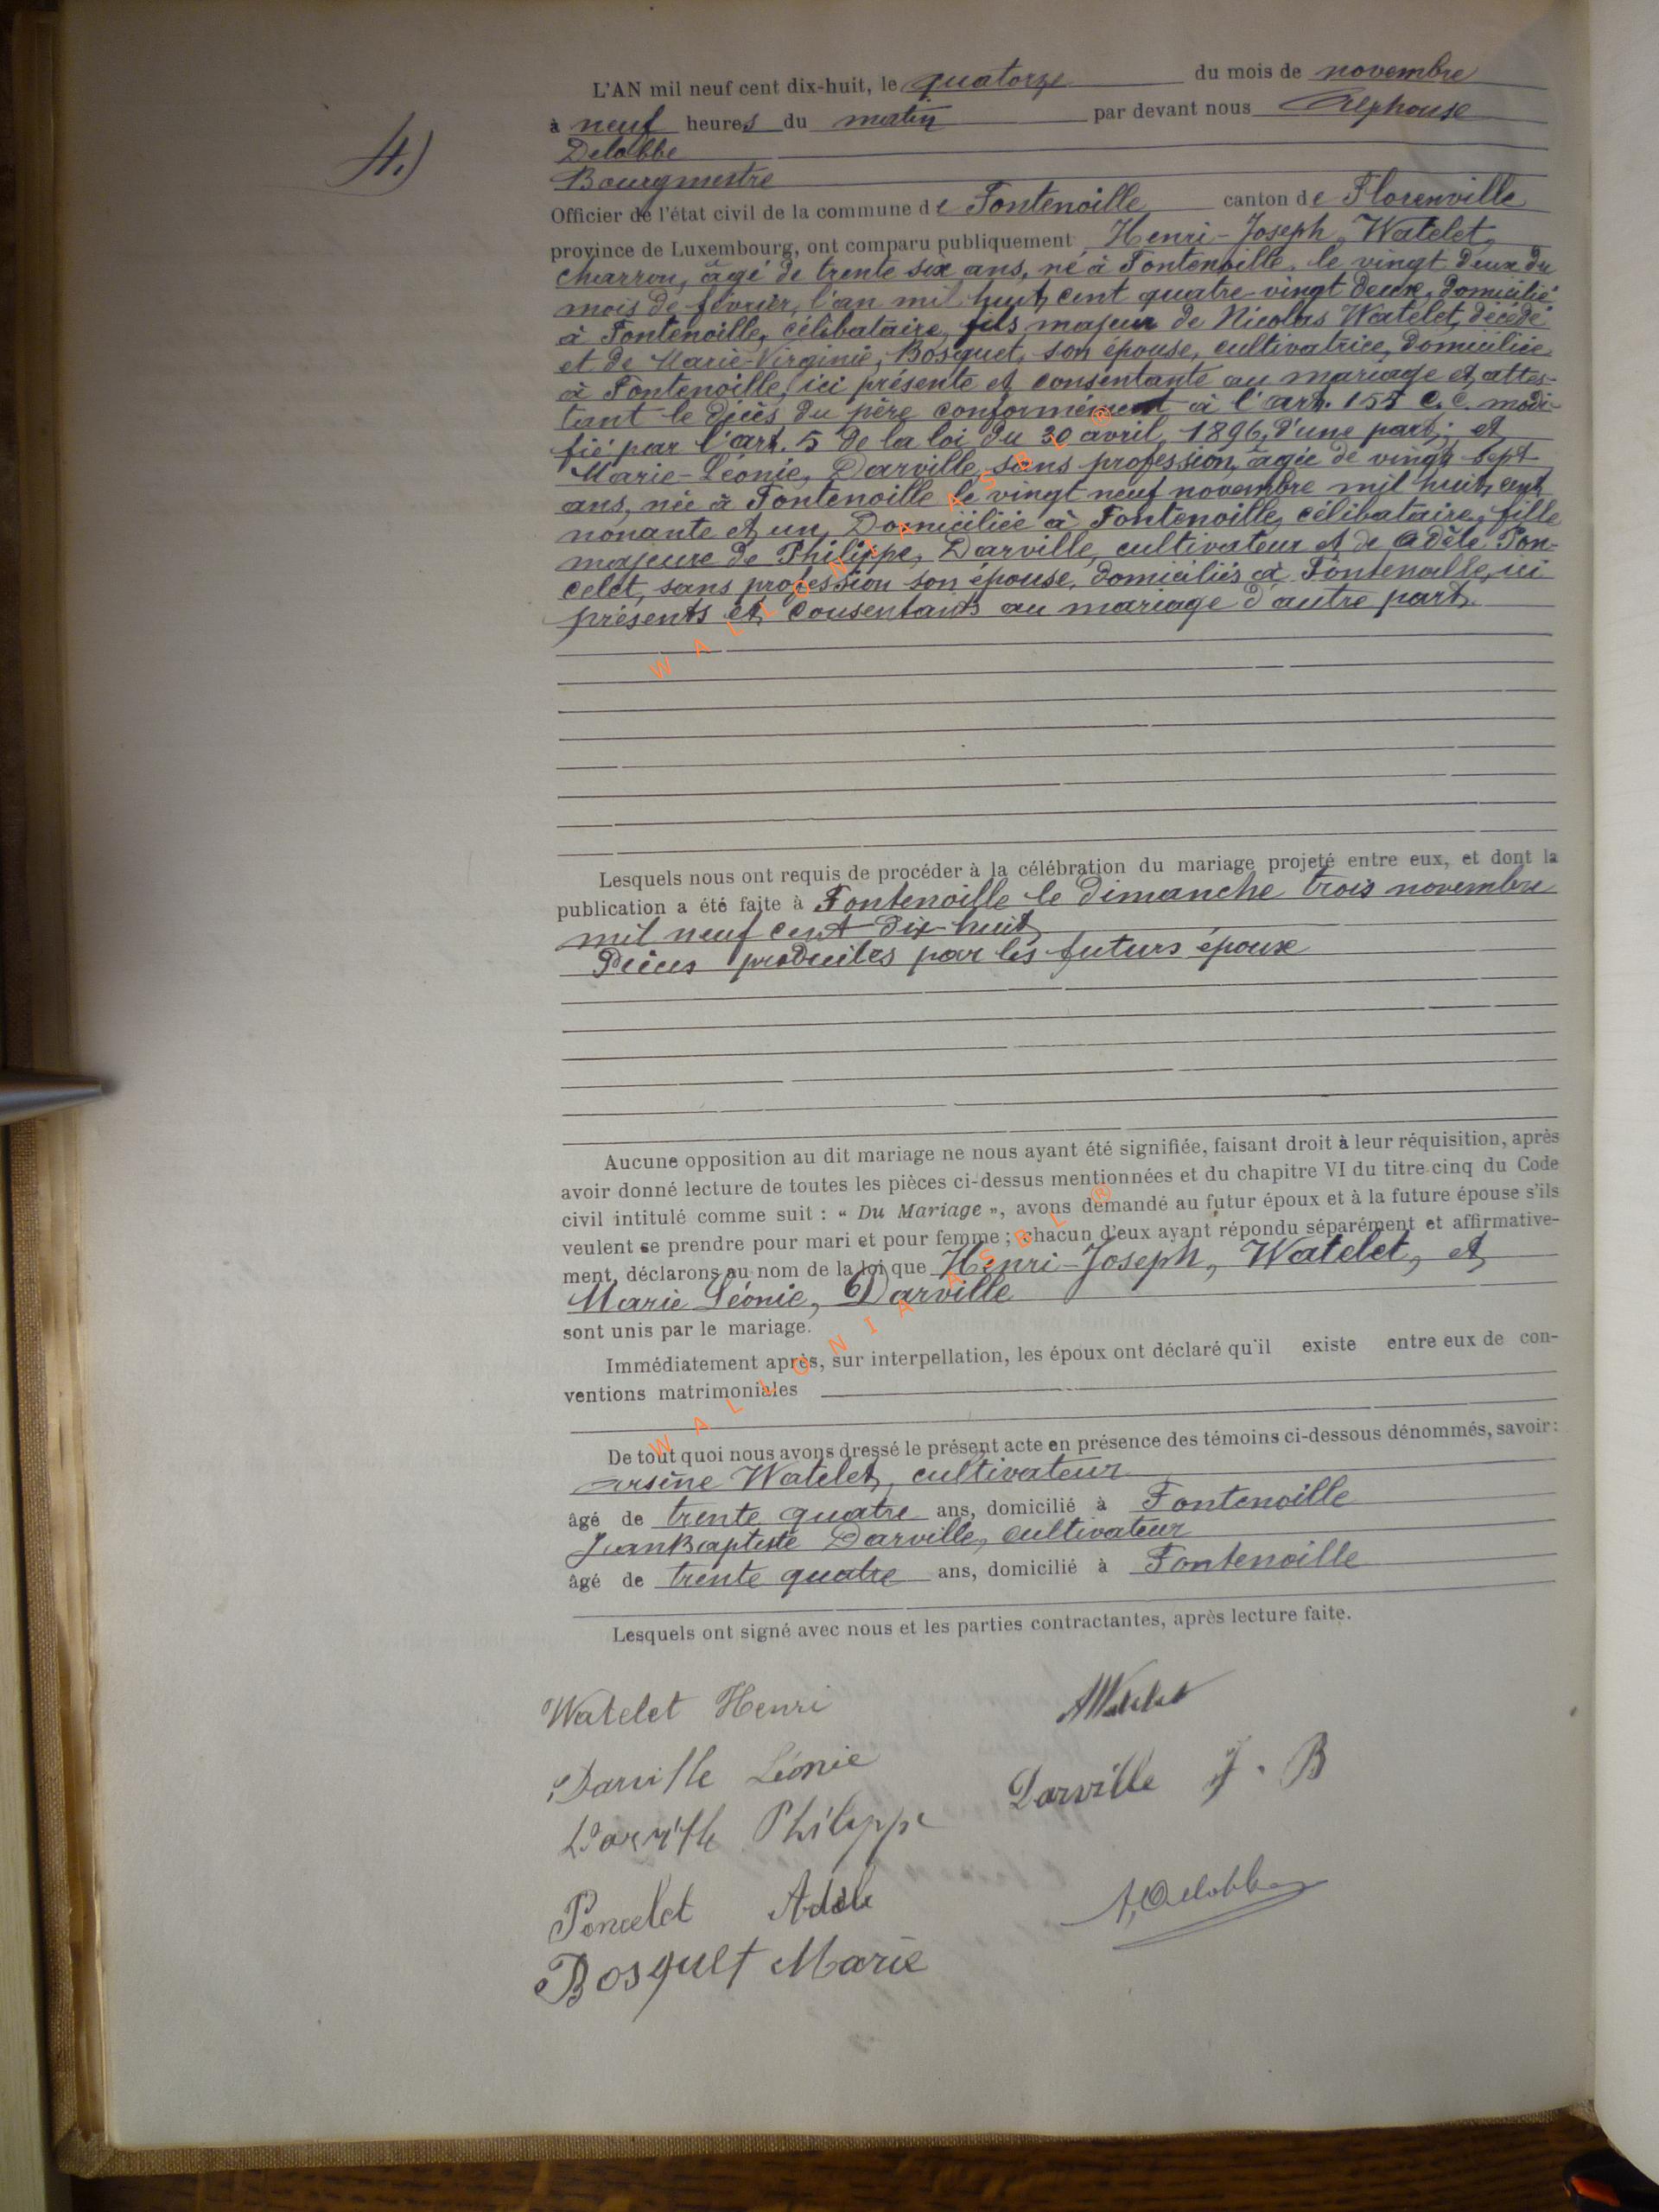 4.)
L'AN mil neuf cent dix-huit, le quatorze du mois de novembre
à neuf heures du matin par devant nous Alphonse
Delobbe
Bourgmestre
Officier de l'état civil de la commune de Fontenoille canton de Florenville
province de Luxembourg, ont comparu publiquement Henri-Joseph, Watelet,
charron, âgé de trente six ans, né à Fontenoille, le vingt deux du
mois de février, l'an mil huit cent quatre-vingt deux, domicilié
à Fontenoille, célibataire, fils majeur de Nicolas Watelet, décédé
et de Marie-Virginie, Bosquet, son épouse, cultivatrice, domiciliée
à Fontenoille, ici présente et consentante au mariage et attes-
tant le décès du père conformément à l'art. 155 C. C. modi-
fié par l'art. 5 de la loi du 30 avril 1896, d'une part; et
Marie-Léonie, Darville, sans profession, âgée de vingt sept
ans, née à Fontenoille le vingt neuf novembre mil huit cent
nonante et un, Domiciliée à Fontenoille, célibataire, fille
majeure de Philippe, Darville, cultivateur et de Adèle Pon-
celet, sans profession son épouse, domiciliés à Fontenoille, ici
présents et consentants au mariage d'autre part.
Lesquels nous ont requis de procéder à la célébration du mariage projeté entre eux, et dont la
publication a été faite à Fontenoille le dimanche trois novembre
mil neuf cent dix-huit
Pièces produites par les futurs époux
Aucune opposition au dit mariage ne nous ayant été signifiée, faisant droit à leur réquisition, après
avoir donné lecture de toutes les pièces ci-dessus mentionnées et du chapitre VI du titre cinq du Code
civil intitulé comme suit : « Du Mariage », avons demandé au futur époux et à la future épouse s'ils
veulent se prendre pour mari et pour femme ; chacun d'eux ayant répondu séparément et affirmative-
ment, déclarons au nom de la loi que Henri-Joseph, Watelet, et
Marie Léonie, Darville
sont unis par le mariage.
Immédiatement après, sur interpellation, les époux ont déclaré qu'il existe entre eux de con-
ventions matrimoniales
De tout quoi nous avons dressé le présent acte en présence des témoins ci-dessous dénommés, savoir :
arsène Watelet, cultivateur
âgé de trente quatre ans, domicilié à Fontenoille
Jean Baptiste Darville, cultivateur
âgé de trente quatre ans, domicilié à Fontenoille
Lesquels ont signé avec nous et les parties contractantes, après lecture faite.
Watelet Henri
AWatelet
Darville Léonie
Darville J. B
Darville Philippe
Poncelet Adèle
A. Delobbe
Bosquet Marie
WALLONIA ASBL ®
WALLONIA ASBL ®